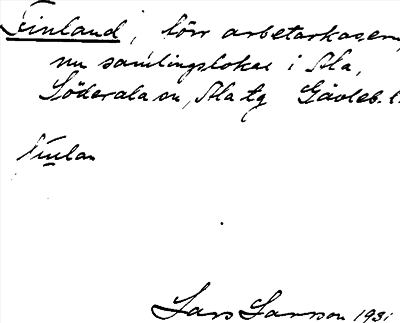 Finland, förr arbetarkasern,
nu samlingslokal i Ala,
Söderala sn, Ala tg Gävleb. l.
Finlan
Lars Larsson 1931